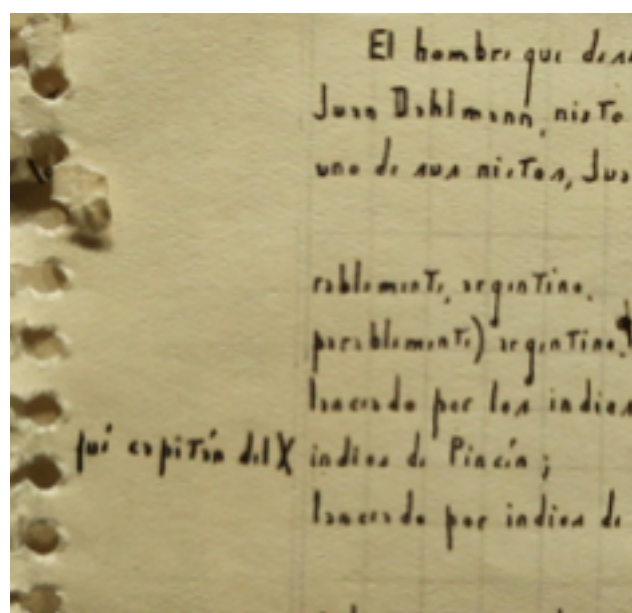 El hombre que
Juan Dahlmann, nieto
uno de sus nietos, Jua
rablemente, argentino.
parablemente) argentino.
lanceado por los indios
fué capitán del X indios de Pincén;
lanceado por indios de